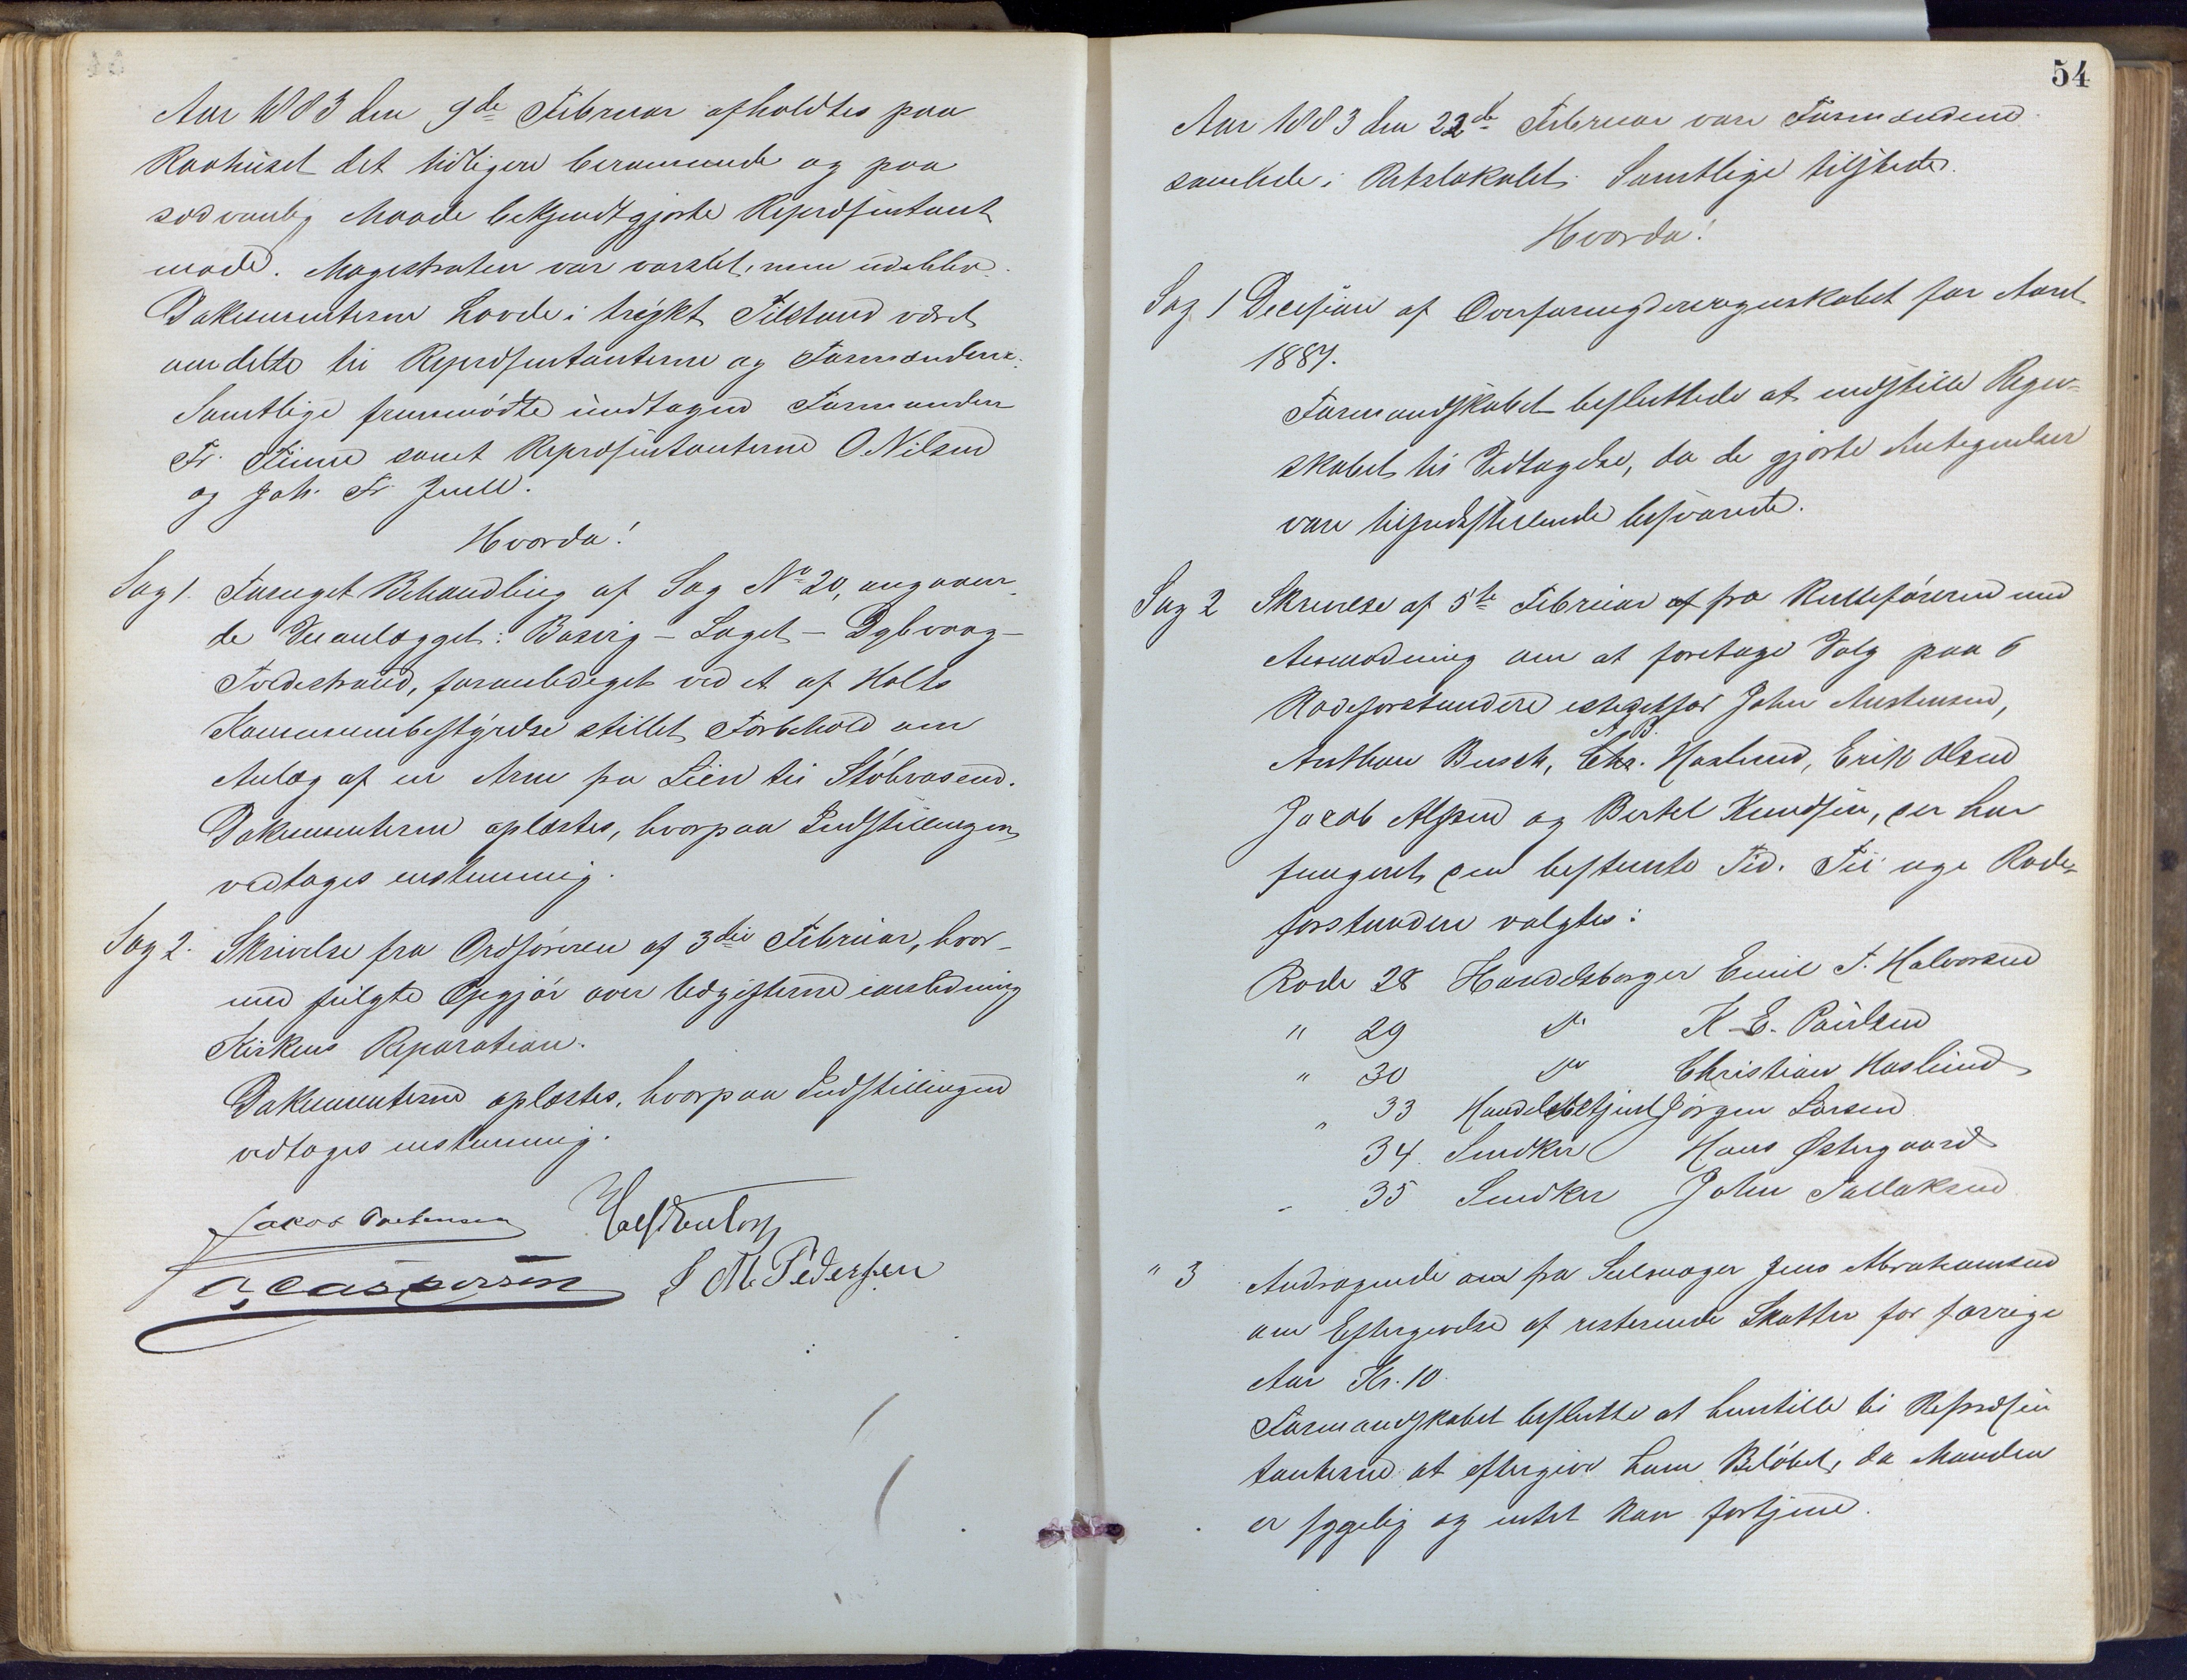 Aar 1883 den 9de Februar afholdtes paa
Raahuset det tidligere berammede og paa
sædvanlig Maade bekjendtgjorte Repræsentant
møde. Magistraten var varslet, men udeblev.
Dokumenterne havde i trykt Tilstand været
omdelte til Repræsentanterne og Formændene.
Samtlige fremmødte undtagen Formanden
Fr. Finne samt Repræsentanterne O. Nilsen
og Joh. Fr. Juell.
Hvorda!
Sag 1. Foruget Behandling af Sag No 20, angaaen-
de Veianlægget: Bosvig - Laget - Dybvaag -
Tvedestrand, foranlediget ved et af Holts
Kommunebestyrelse stillet Forbehold om
Anlæg af en Arm fra Lien til Støbvasen.
Dokumenterne oplæstes, hvorpaa Indstillingen
vedtoges enstemmig.
Sag 2. Skrivelse fra Ordføreren af 3die Februar, hvor-
med fulgte Opgjør over Udgifterne i anledning
Kirkens Reparation.
Dokumenterne oplæstes, hvorpaa Indstillingen
vedtoges enstemmig.
S M Pedersen
Caspersen
54
Aar 1883 den 22de Februar vare Formændene
samlede i Retslokalet. Samtlige tilstede.
Hvorda!
Sag 1 Decision af Overformynderregnskabet for Aaret
1881.
Formandskabet besluttede at indstille Regn-
skabet til Vedtagelse, da de gjorte Antegnelser
vare tilfredsstillende besvarede.
Sag 2 Skrivelse af 5te Februar af fra Rulleføreren med
Anmodning om at foretage Valg paa 6
Rodeforstandere istedetfor John Austensen,
A. B.
Anthon Busch, Chr. Haslund, Erik Olsen
Jacob Alfsen og Bertel Knudsen, der har
fungeret den bestemte Tid. Til nye Rode-
forstandere valgtes:
Rode 28 Handelsborger Emil T. Halvorsen
" 29 do K. E. Paulsen
" 30 do Christian Haslund
" 33 Handelsbetjent Jørgen Larsen
34. Snedker Hans Østergaard
" 35 Snedker John Tallaksen
" 3 Andragende om fra Seilmager Jens Abrahamsen
om Eftergivelse af resterende Skatter for forrige
Aar Kr. 10.
Formandskabet beslutte at henstille til Repræsen
tanterne at eftergive ham Beløbet, da Manden
er sygelig og intet kan fortjene.